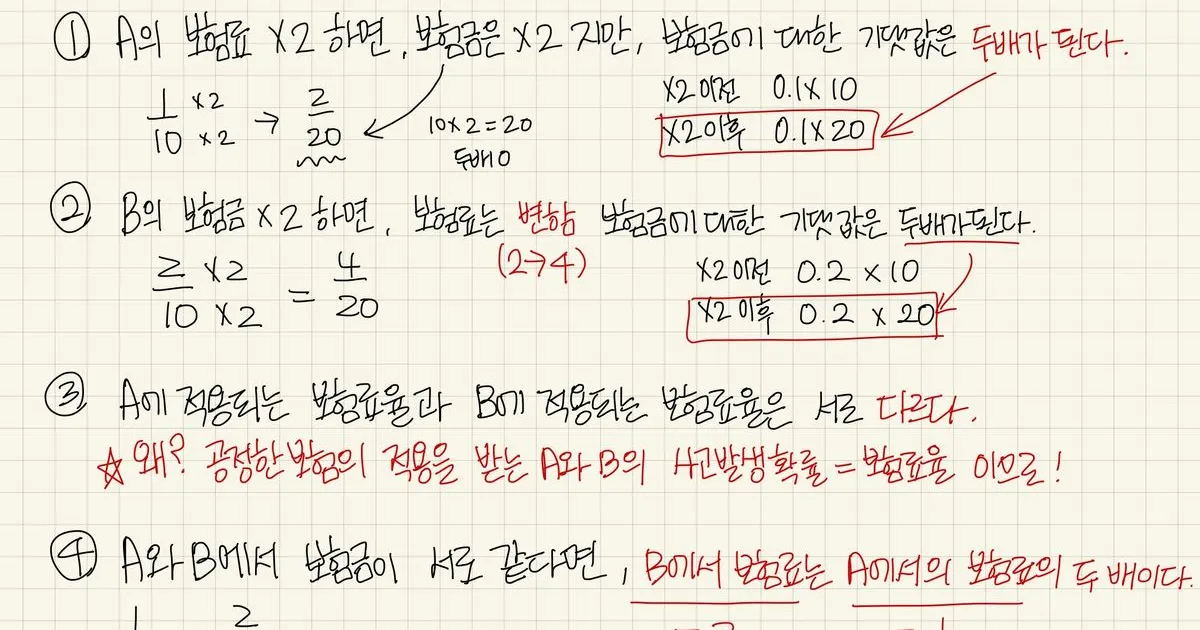 ① A의 보험료 ×2 하면, 보험금은 ×2 지만, 보험금에 대한 기댓값은 두배가 된다.
1/10 ×2 ×2 → 2/20
10×2=20
두배 O
×2 이전 0.1×10
×2 이후 0.1×20
② B의 보험금 ×2 하면, 보험료는 변함 보험금에 대한 기댓값은 두배가 된다.
(2→4)
2/10 ×2 ×2 = 4/20
×2 이전 0.2 × 10
×2 이후 0.2 × 20
③ A에 적용되는 보험료율과 B에 적용되는 보험료율은 서로 다르다.
☆ 왜? 공정한 보험의 적용을 받는 A와 B의 사고발생확률 = 보험료율 이므로!
④ A와 B에서 보험금이 서로 같다면, B에서 보험료는 A에서의 보험료의 두 배이다.
1 2